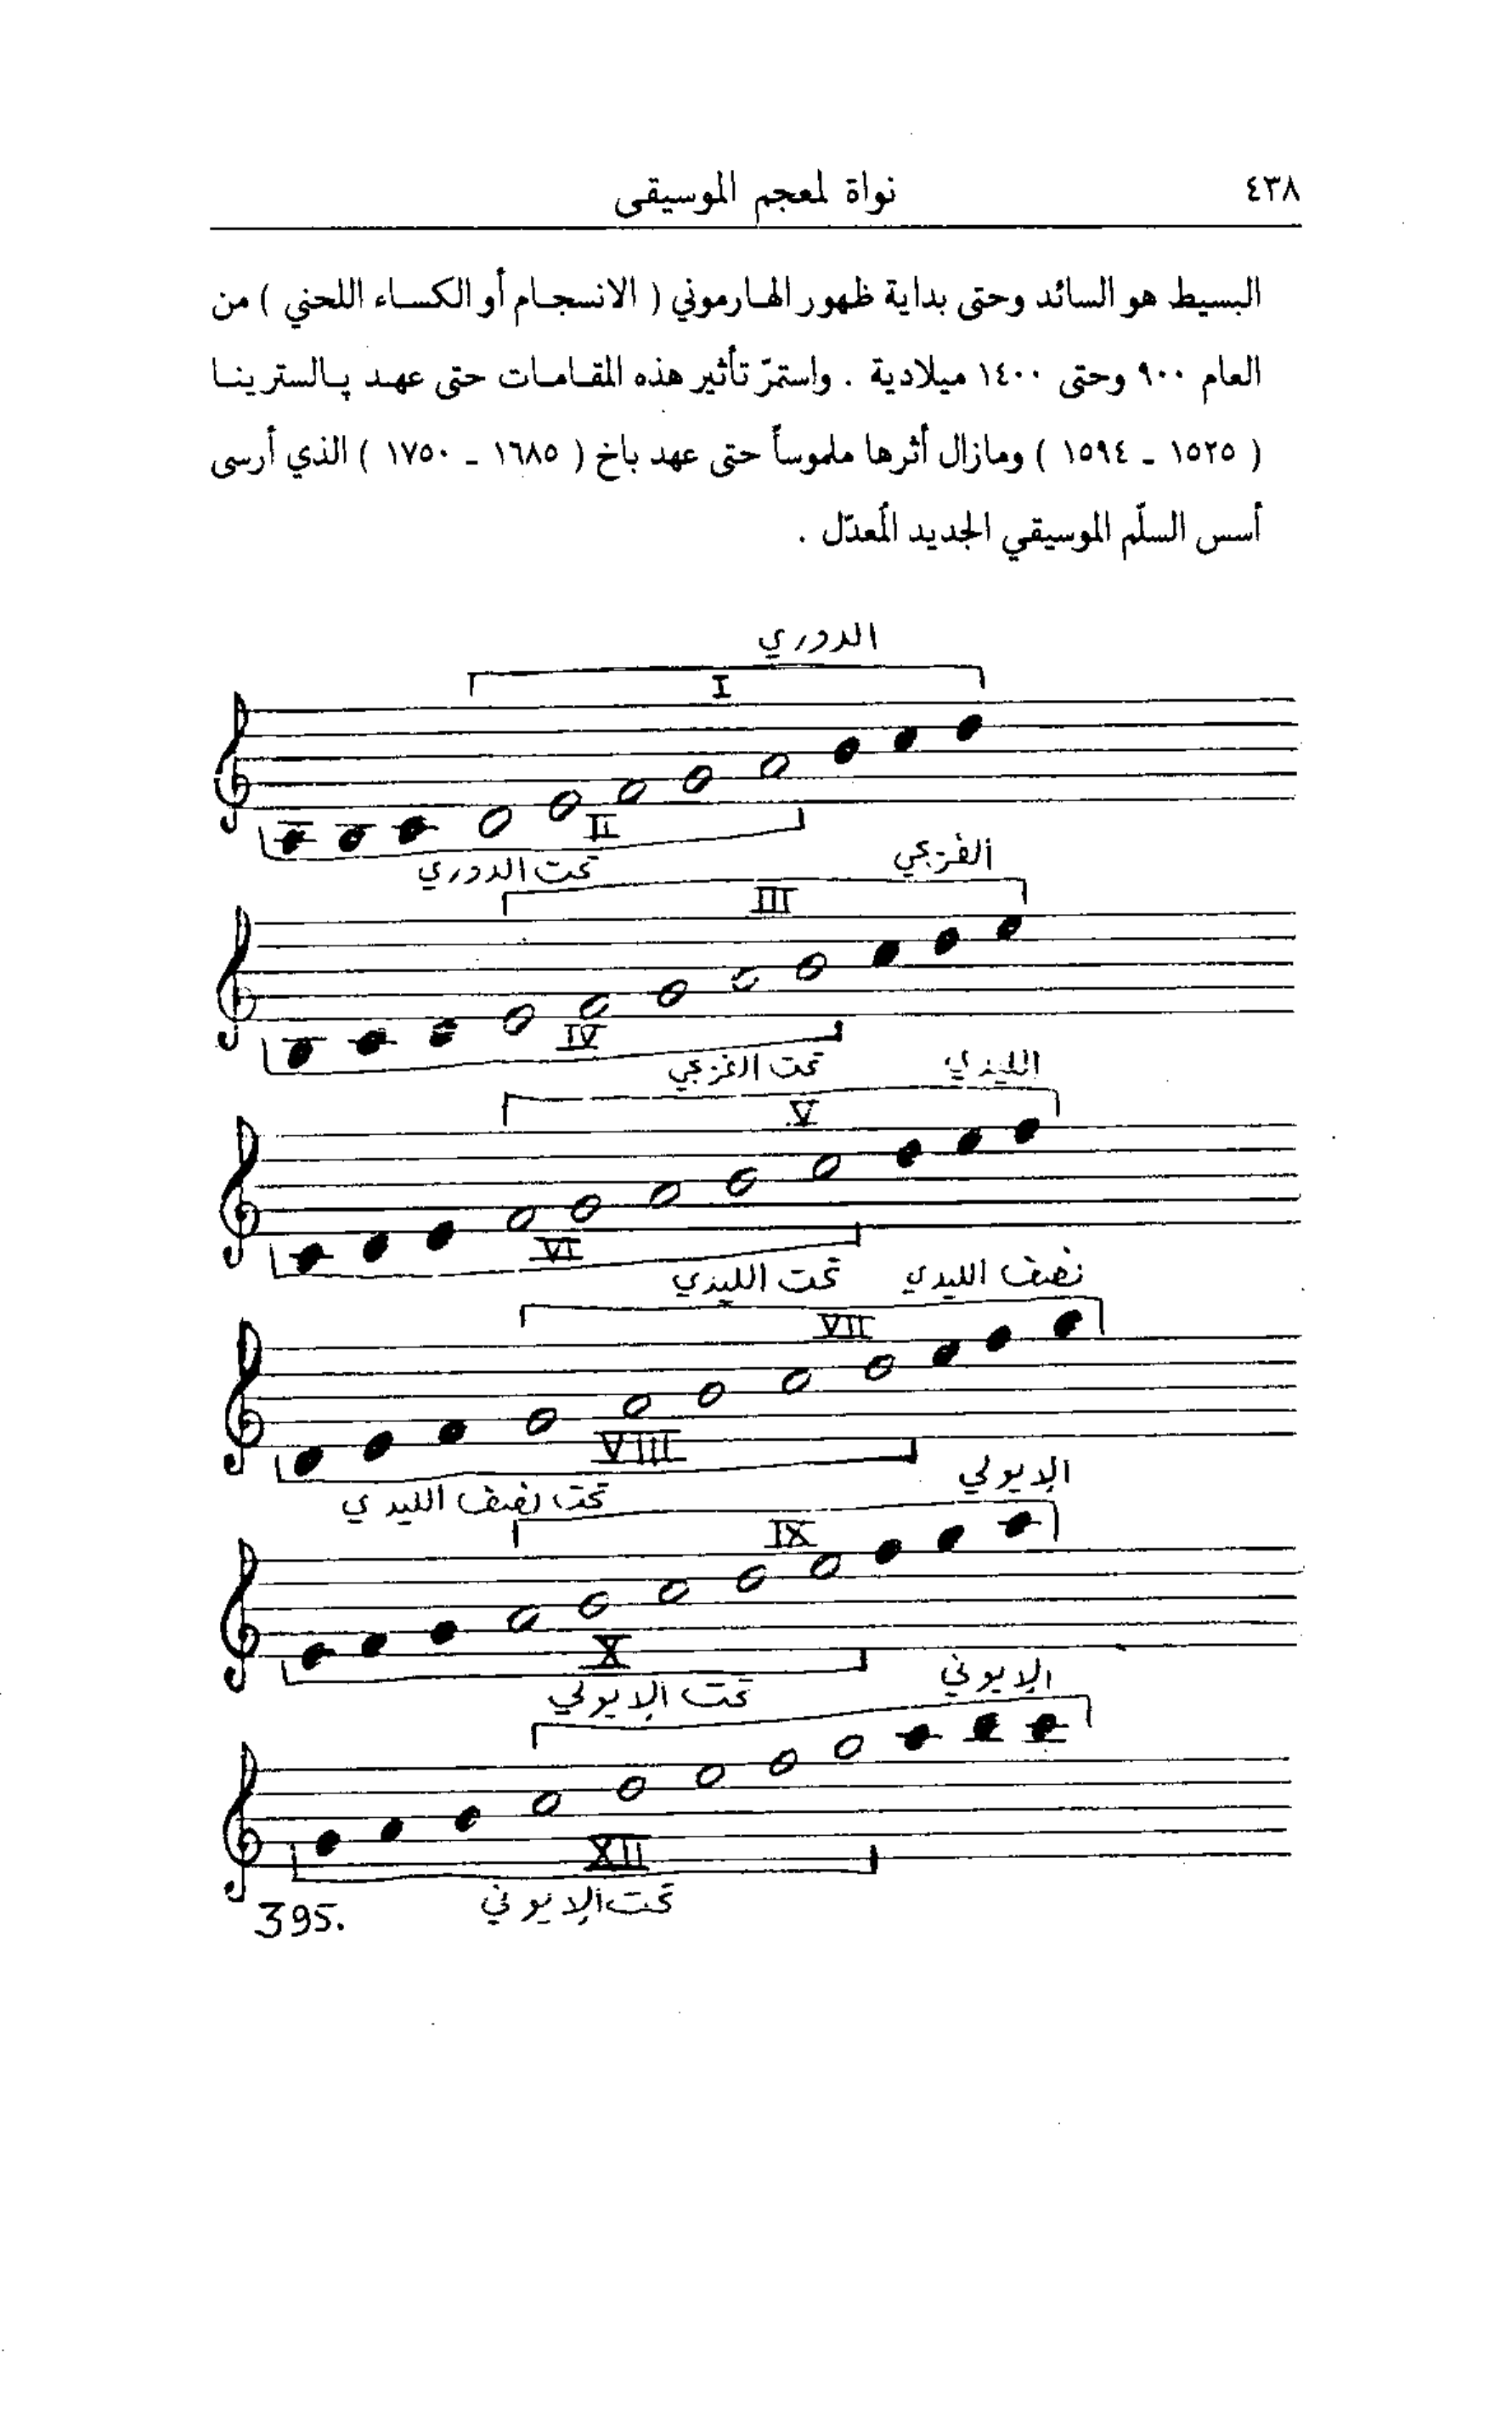 ٤٣٨
نواة لمعجم الموسيقى
البسيط هو السائد وحتى بداية ظهور الهارموني ( الانسجام أو الكساء اللحني ) من
العام ٩٠٠ وحتى ١٤٠٠ ميلادية . واستمرّ تأثير هذه المقامات حتى عهد پالسترينا
( ١٥٢٥ ـ ١٥٩٤ ) ومازال أثرها ملموساً حتى عهد باخ ( ١٦٨٥ ـ ١٧٥٠ ) الذي أرسى
أسس السلّم الموسيقي الجديد المُعدّل .
الدوري
I
II
تحت الدوري
الفزجي
III
IV
تحت الفزجي
الليدي
V
VI
تحت الليدي
نصف الليدي
VII
VIII
تحت نصف الليدي
الإيولي
IX
X
تحت الإيولي
الإيوني
XII
تحت الإيوني
395.